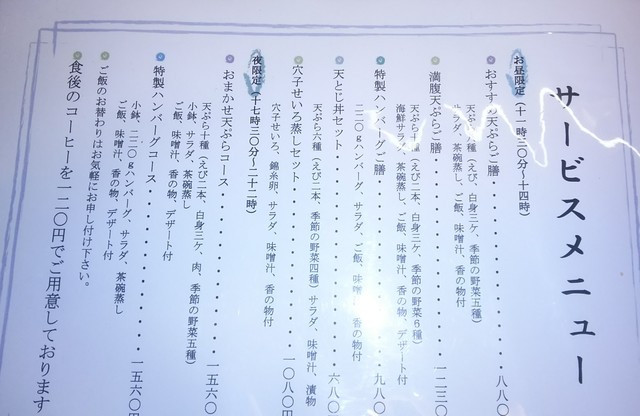 サービスメニュー
お昼限定(十一時三〇分〜十四時)
おすすめ天ぷらご膳・・・・・・・・・八八〇
天ぷら六種(えび二本、白身三ケ、季節の野菜五種)
サラダ、茶碗蒸し、ご飯、味噌汁、香の物付
満腹天ぷらご膳・・・・・・・・・一二三〇
天ぷら十種(えび二本、白身三ケ、季節の野菜6種)
海鮮サラダ、茶碗蒸し、ご飯、味噌汁、香の物、デザート付
特製ハンバーグご膳・・・・・・・・・九八〇
二二〇gハンバーグ、サラダ、ご飯、味噌汁、香の物付
天とじ丼セット・・・・・・・・・六八〇
天ぷら六種(えび二本、季節の野菜四種)サラダ、味噌汁、漬物
穴子せいろ蒸しセット・・・・・・・・・一〇八〇円
穴子せいろ、錦糸卵、サラダ、味噌汁、香の物付
夜限定(十七時三〇分〜二十二時)
おまかせ天ぷらコース・・・・・・・・・一五六〇
天ぷら十種(えび二本、白身三ケ、肉、季節の野菜五種)
小鉢、サラダ、茶碗蒸し
ご飯、味噌汁、香の物、デザート付
特製ハンバーグコース・・・・・・・・・一五六〇円
小鉢、二二〇gハンバーグ、サラダ、茶碗蒸し
ご飯、味噌汁、香の物、デザート付
ご飯のお替わりはお気軽にお申し付け下さい。
食後のコーヒーを一二〇円でご用意しております